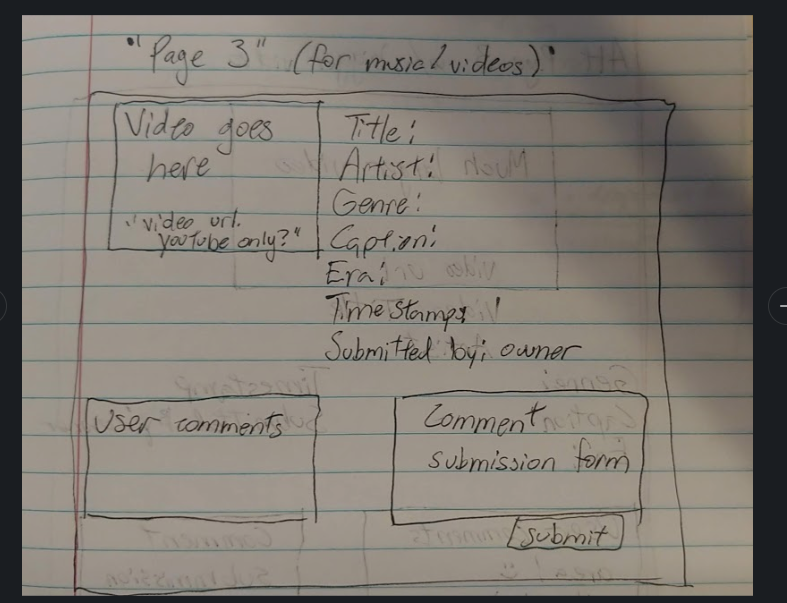 "Page 3" (for musical videos)
Video goes
here
"video url.
youtube only?"
Title:
Artist:
Genre:
Caption:
Era:
Timestamp:
Submitted by: owner
User comments
Comment
submission form
submit